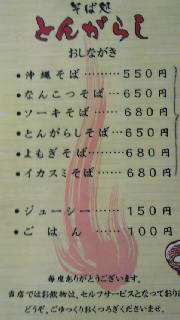 そば処
とんがらし
おしながき
・沖縄そば………550円
・なんこつそば……650円
・ソーキそば………680円
・とんがらしそば…650円
・よもぎそば………680円
・イカスミそば……680円
・ジューシー………150円
・ごはん……………100円
毎度ありがとうございます。
当店ではお飲物は、セルフサービスとなっており
どうぞ、ごゆっくりおくつろぎくださいませ。